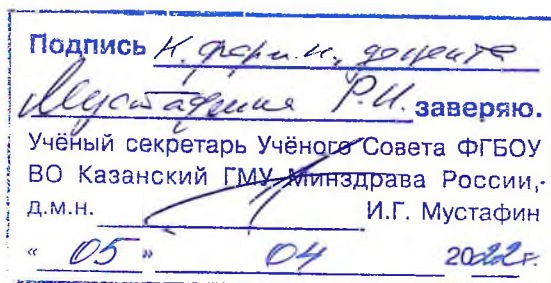 Подпись К. фарм.н., доцента
Мустафина Р.И. заверяю.
Учёный секретарь Учёного Совета ФГБОУ
ВО Казанский ГМУ Минздрава России,-
д.м.н. И.Г. Мустафин
" 05 " 04 2022г.